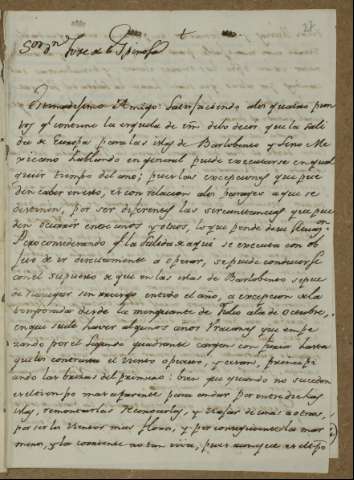 27
Sor. Dn. Jose de Espinosa
Estimadisimo Amigo: Satisfaciendo a los quatro pun
tos q. contiene la esquela de Vm. debo decir que la Sali
da de Europa para las islas de Barlobento y Seno Me
xicano hablando en general puede executarse en qual
quier tiempo del año; pues las excepciones que pue
den caber en esto, es con relacion a los parages a que se
destinen, por ser diferentes las circunstancias que pue
den ocurrir entre unos y otros, lo que pende de sus
Pero considerando q. la Salida de aqui se executa con ob
jeto de ir directamente a operar, se puede conducir
con el supuesto de que en las islas de Barlobento se pue
de navegar sin riesgo entrado el año, a excepcion de la
temporada desde la menguante de Julio a la de Octubre,
en que suele haver algunos años Uracanes que empe
zando por el segundo quadrante cargan con furia hasta
que los contrasta el viento opuesto, y cesan, principi
ando las brisas del primero: bien que quando no suceden
es el tiempo mas aparente para andar por entre dhas
islas, remontarlas, reconocerlas, y viajar de una a otras,
por ser los vientos mas flojos, y por consiguiente la mar
menos, y la corriente no tan viva; pues aunque es el tpo